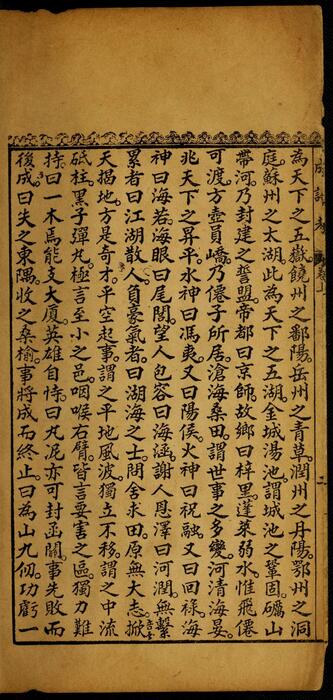 為天下之五嶽饒州之鄱陽岳州之青草潤州之丹陽鄂州之洞
庭蘇州之太湖此為天下之五湖金城湯池謂城池之鞏固礪山
帶河乃封建之誓盟帝都曰京師故鄉曰梓里蓬萊弱水惟飛僊
可渡方壺員嶠乃僊子所居滄海桑田謂世事之多變河清海晏
兆天下之昇平水神曰馮夷又曰陽侯火神曰祝融又曰回祿海
神曰海若海眼曰尾閭望人包容曰海涵謝人恩澤曰河潤無繫
累者曰江湖散人負豪氣者曰湖海之士問舍求田原無大志掀
天揭地方是奇才平空起事謂之平地風波獨立不移謂之中流
砥柱黑子彈丸極言至小之邑咽喉右臂皆言要害之區獨力難
持曰一木焉能支大廈英雄自恃曰丸泥亦可封函關事先敗而
後成曰失之東隅收之桑榆事將成而終止曰為山九仞功虧一